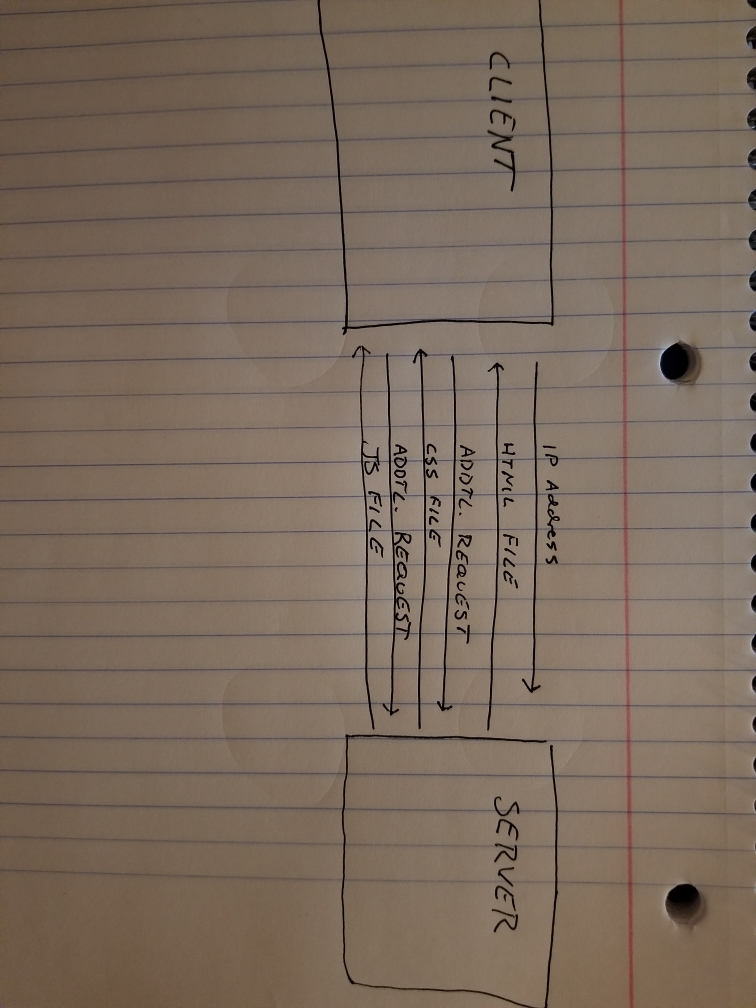 CLIENT
IP Address
HTML FILE
ADDTL. REQUEST
CSS FILE
ADDTL. REQUEST
JS FILE
SERVER